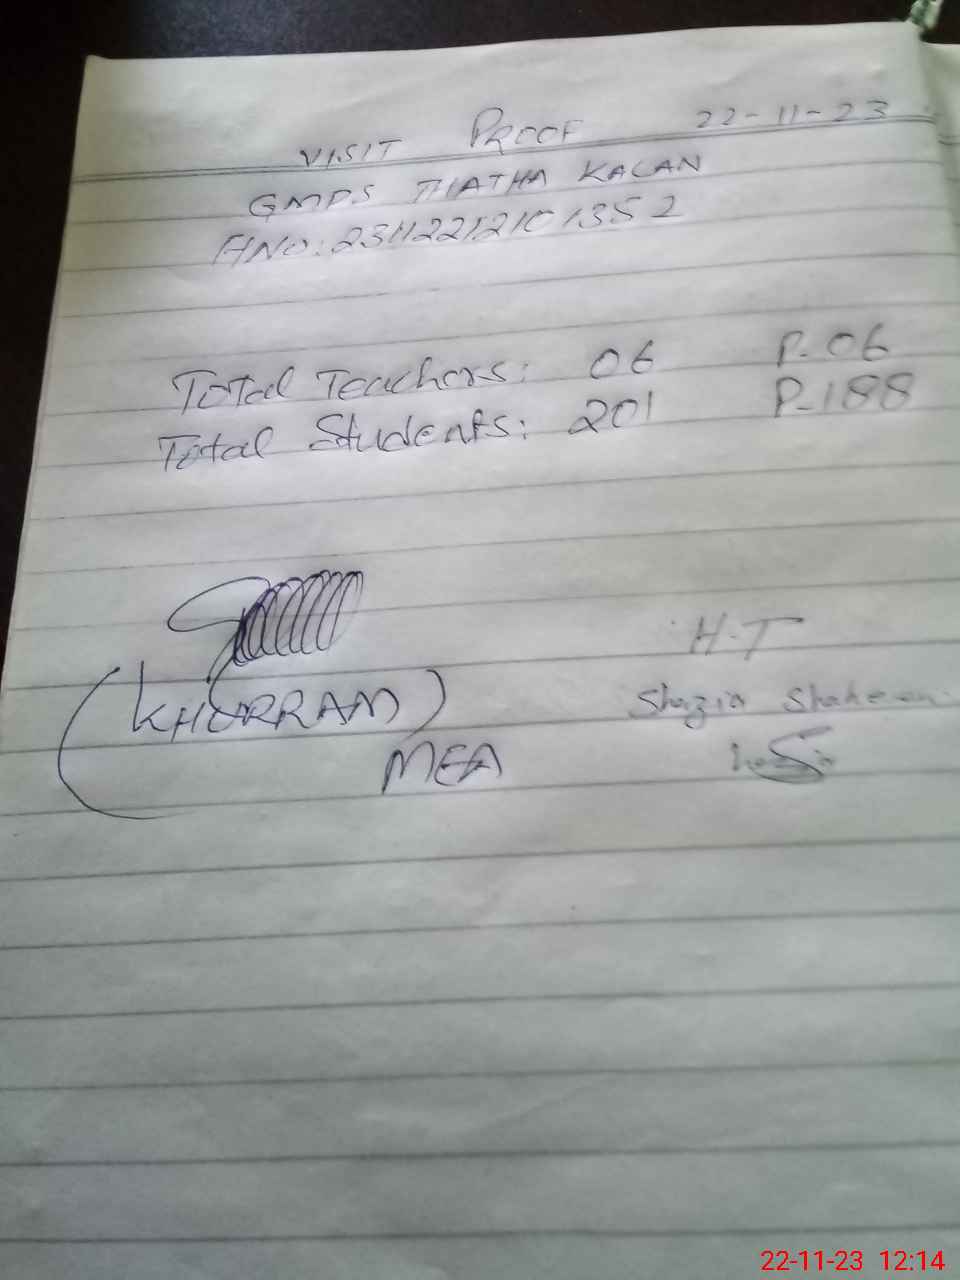 VISIT PROOF 22-11-23
GMPS THATHA KALAN
ANO: 23112212101352
Total Teachers: 06 P-06
Total Students: 201 P-188
H.T
(KHURRAM) Shazia Shaheen
MEA
22-11-23 12:14